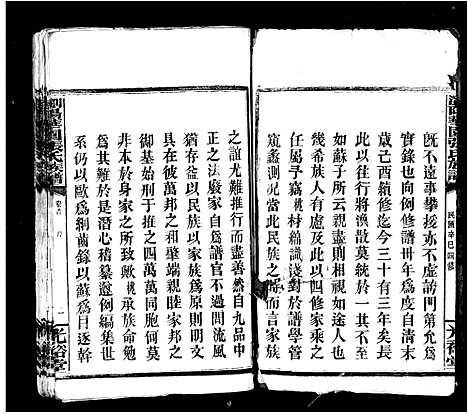 既不遠事攀援亦不虛誇門第允爲
實錄也向例修譜卅年爲度自清末
歲己酉續修迄今三十有三年矣長
此以往行將渙散莫統於一日
如蘇子所云親盡則相視如途人也
幾希族人有慮及此以四修
任屬予竊桃材綿識淺對於譜學管
窺蠡測況當此民族之際而言家族
之誼尤難推行而盡善然自九品中
正之法廢家自爲譜官不過問流風
猶存益以民族以家族爲原則明文
具在彼萬邦之和肇端親睦家邦之
御基始刑于推之四萬萬同胞何莫
非本於身家之所致歟桃承族命勉
爲其難於是潛心積纂遵例編集世
系仍以歐爲綱齒錄以蘇爲目逐幹
瀏陽華園張氏族譜
卷首
光裕堂
民國辛巳四修
光裕堂